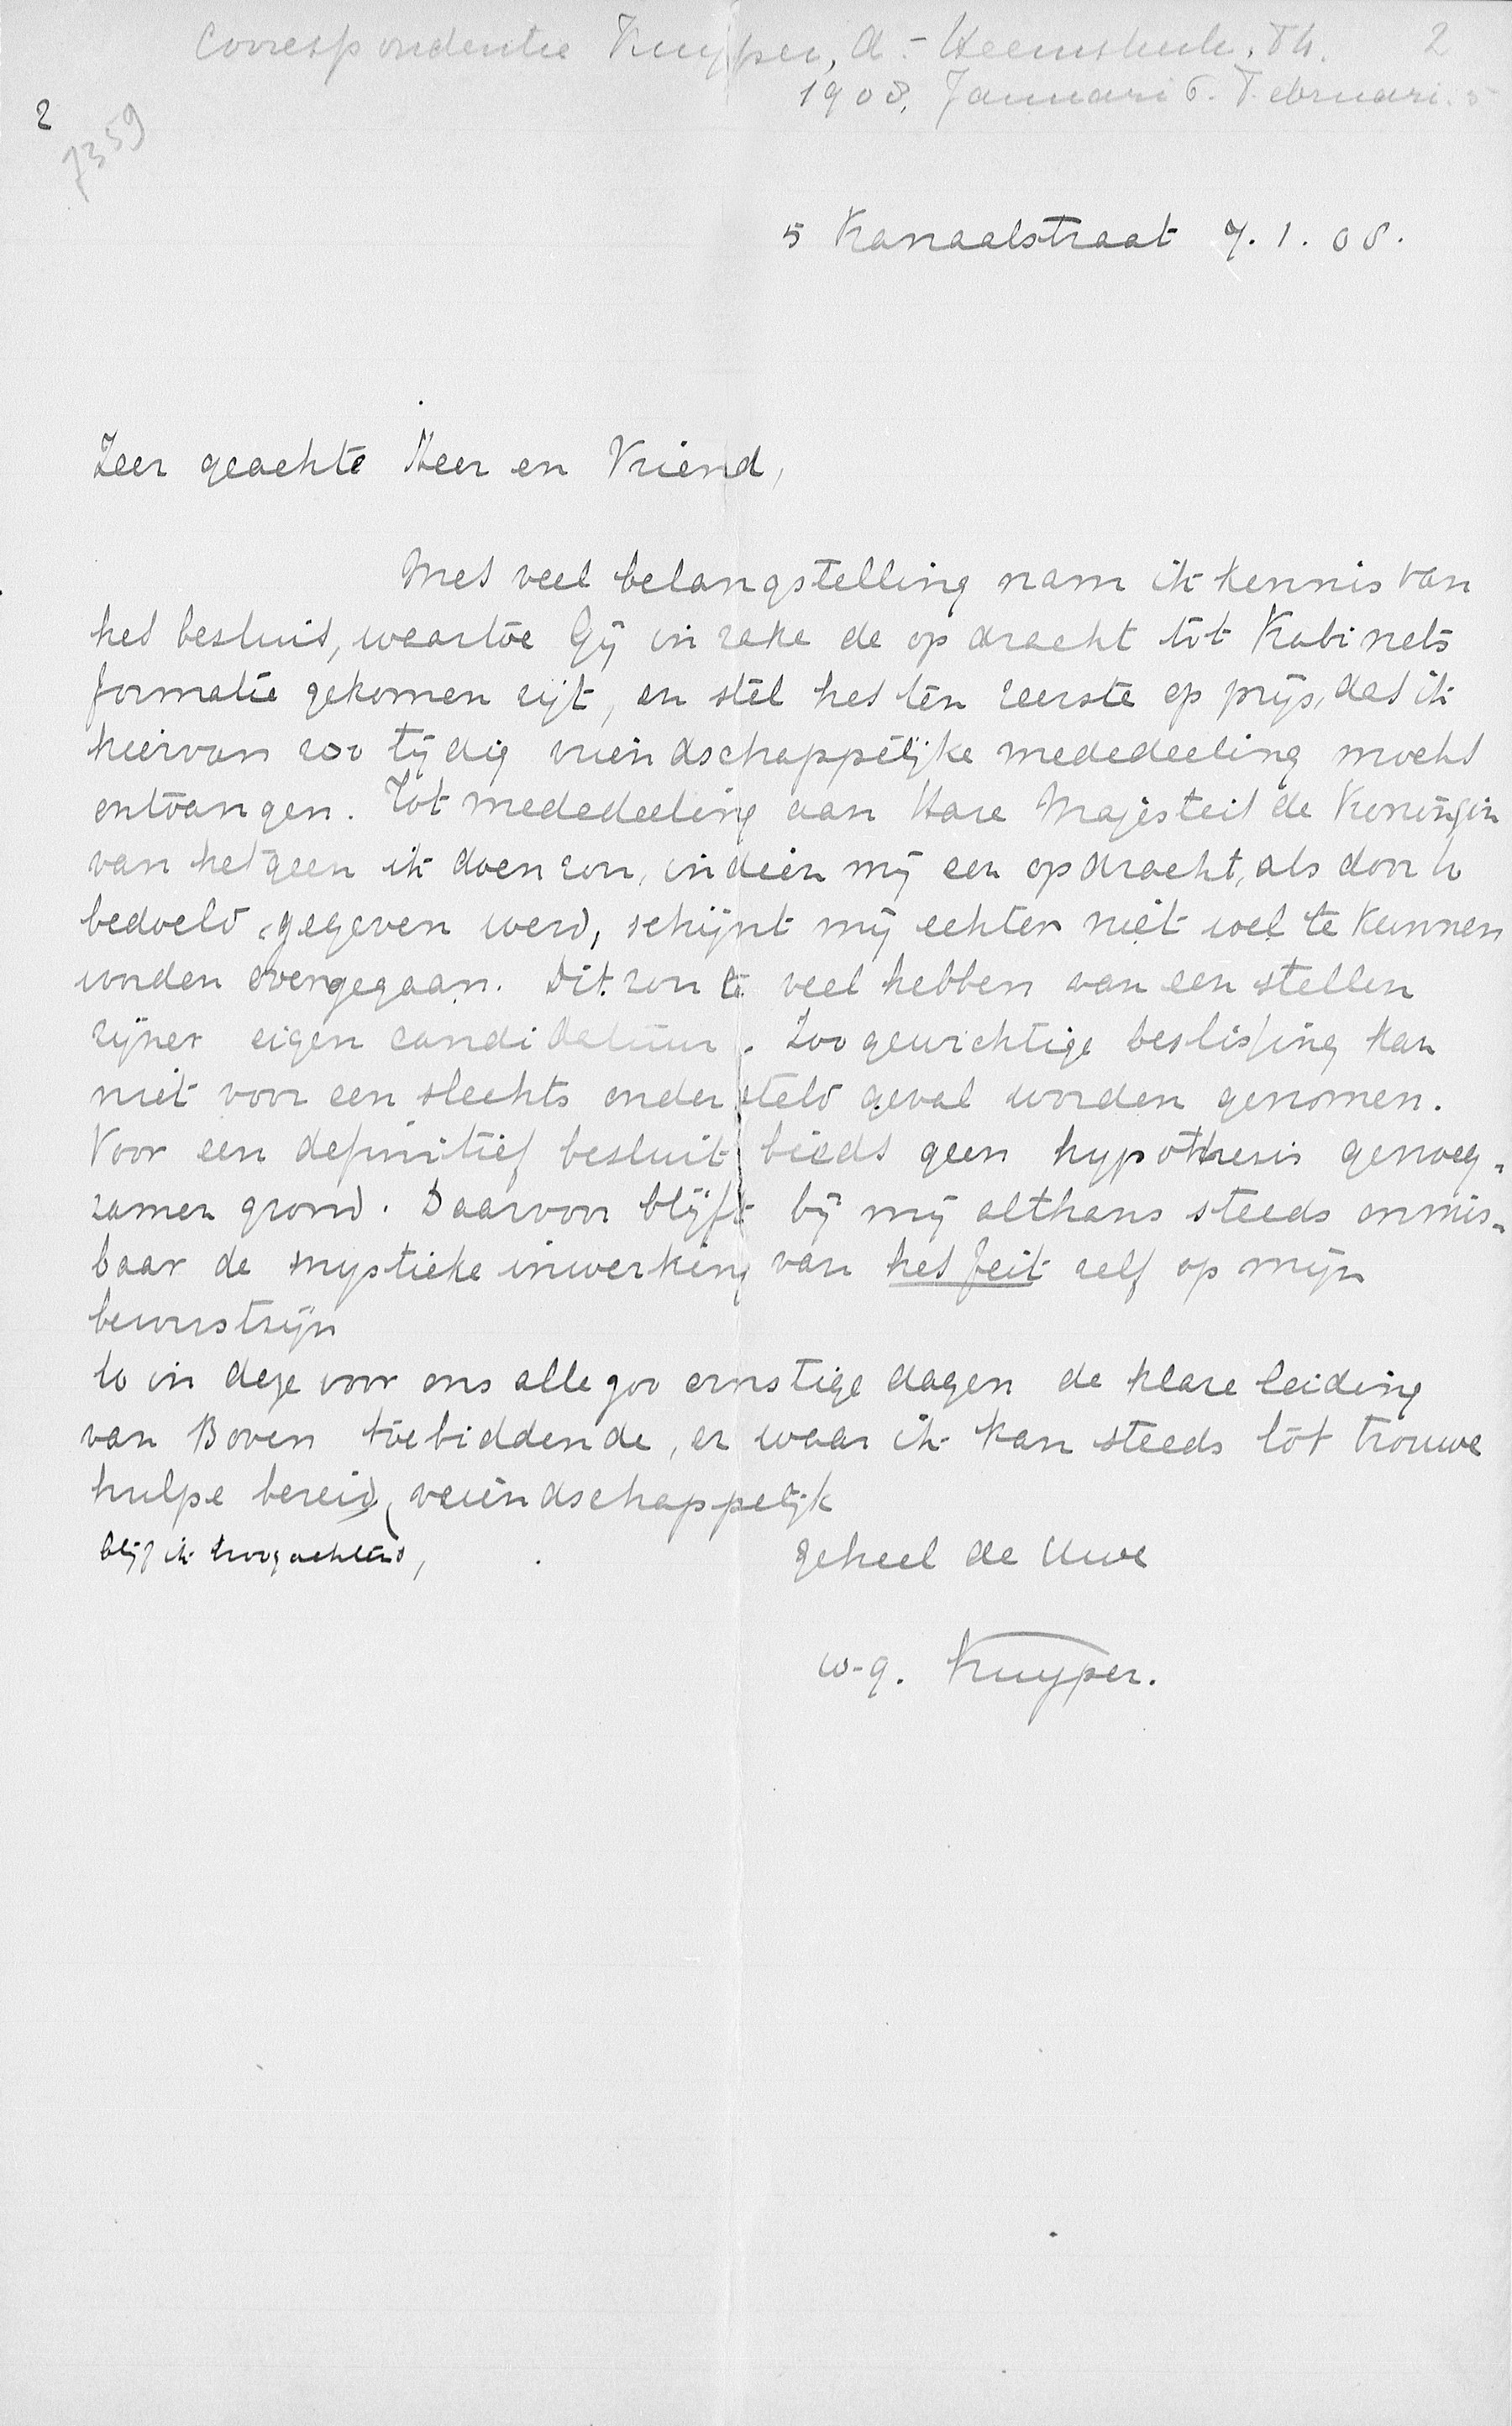 Correspondentie Kuyper, A. - Heemskerk. Th. 2
1908. Januari 6. Februari. 5
2
7359
5 Kanaalstraat 7.1.08.
Zeer geachte Heer en Vriend,
Met veel belangstelling nam ik kennis van
het besluit, waartoe Gij in zake de opdracht tot Kabinets
formatie gekomen zijt, en stel het ten zeerste op prijs, dat ik
hiervan zoo tijdig vriendschappelijke mededeeling mocht
ontvangen. Tot mededeeling aan Hare Majesteit de Koningin
van hetgeen ik doen zou, indien mij een opdracht, als door U
bedoeld, gegeven werd, schijnt mij echter niet wel te kunnen
worden overgegaan. Dit zou te veel hebben van een stellen
zijner eigen candidatuur. Zoo gewichtige beslissing kan
niet voor een slechts ondersteld geval worden genomen.
Voor een definitief besluit biedt geen hypothesis genoeg-
zamen grond. Daarvoor blijft bij mij althans steeds onmis-
baar de mystieke inwerking van het feit zelf op mijn
bewustzijn
U in deze voor ons alle zoo ernstige dagen de klare leiding
van Boven toebiddende, en waar ik kan steeds tot trouwe
hulpe bereid, vriendschappelijk
blijf ik hoogachtend,
geheel de Uwe
w.g. Kuyper.